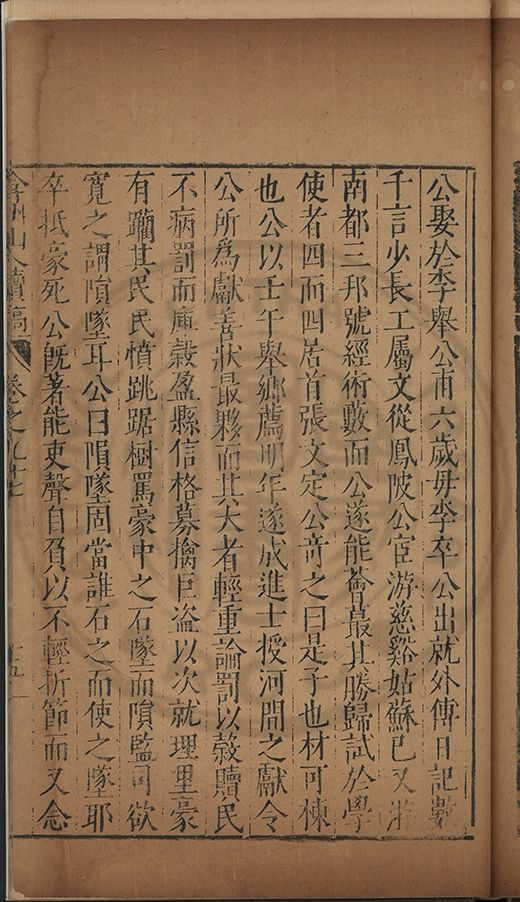 公娶於李舉公甫六歲毋李卒公出就外傅日記數
千言少長工屬文從鳳陂公宦游慈谿姑蘇已又游
南都三邦號經術藪而公遂能薈最其勝歸試於學
使者四而四居首張文定公竒之曰是子也材可棟
也公以壬午舉鄉薦明年遂成進士授河間之獻令
公所爲獻善狀最夥而其大者輕重論罰以穀贖民
不病罰而庫穀盈縣信格募擒巨盗以次就理里豪
有躪其民民憤跳踞樹罵豪中之石墜而隕監司欲
寛之謂隕墜耳公曰隕墜固當誰石之而使之墜耶
卒抵豪死公旣著能吏聲自負以不輕折節而又念
弇州山人續稿 卷之九十七 十五